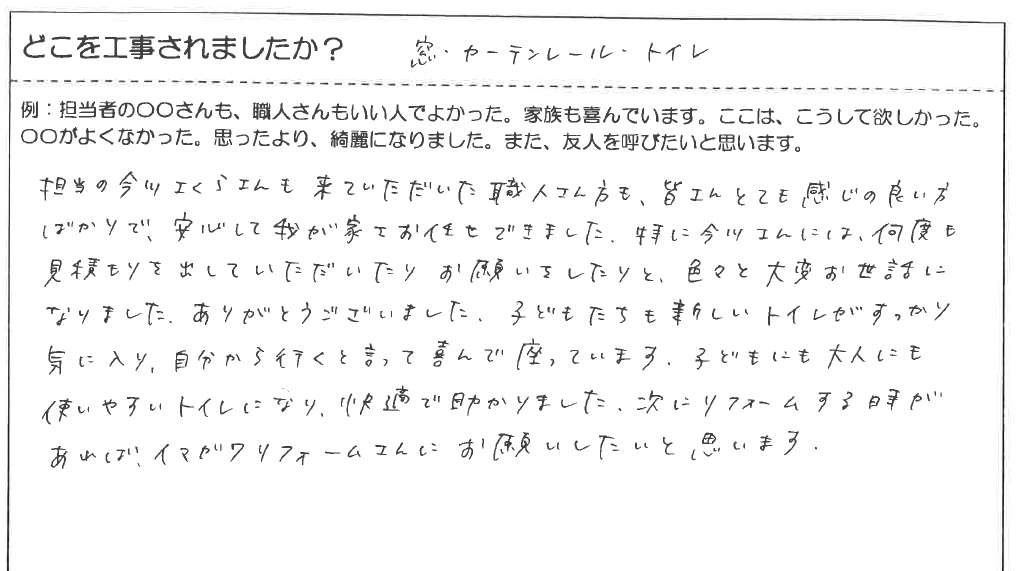 どこを工事されましたか？ 窓・カーテンレール・トイレ
例：担当者の〇〇さんも、職人さんもいい人でよかった。家族も喜んでいます。ここは、こうして欲しかった。
〇〇がよくなかった。思ったより、綺麗になりました。また、友人を呼びたいと思います。
担当の今川さくらさんも来ていただいた職人さん方も、皆さんとても感じの良い方
ばかりで、安心して我が家をお任せできました。特に今川さんには、何度も
見積もりを出していただいたりお願いをしたりと、色々と大変お世話に
なりました。ありがとうございました。子どもたちも新しいトイレがすっかり
気に入り、自分から行くと言って喜んで座っています。子どもにも大人にも
使いやすいトイレになり、快適で助かりました。次にリフォームする時が
あれば、イマガワリフォームさんにお願いしたいと思います。